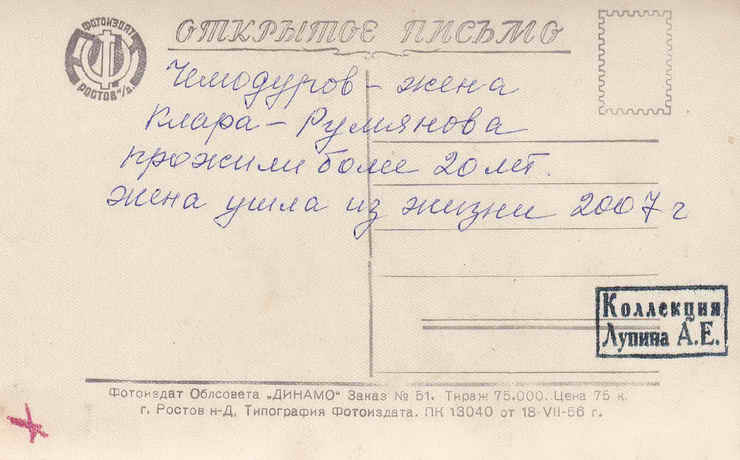 ФОТОИЗДАТ
РОСТОВ н/Д.
ОТКРЫТОЕ ПИСЬМО
Чемодуров – жена
Клара – Румянова
прожили более 20 лет.
жена ушла из жизни 2007 г
Коллекция
Лупина А.Е.
Фотоиздат Облсовета „ДИНАМО“ Заказ № 51. Тираж 75.000. Цена 75 к.
г. Ростов н-Д, Типография Фотоиздата. ПК 13040 от 18-VII-56 г.